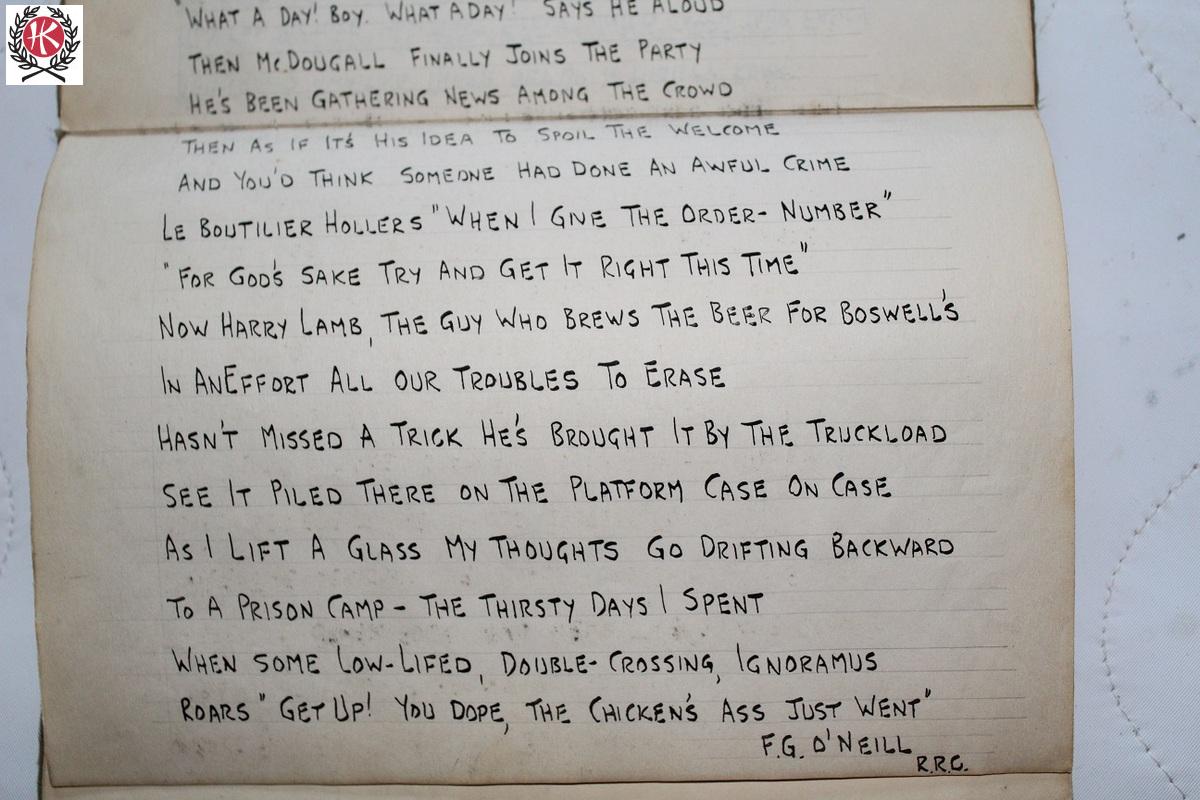 HK
"WHAT A DAY! BOY. WHAT A DAY! SAYS HE ALOUD
THEN Mc.DOUGALL FINALLY JOINS THE PARTY
HE'S BEEN GATHERING NEWS AMONG THE CROWD
THEN AS IF IT'S HIS IDEA TO SPOIL THE WELCOME
AND YOU'D THINK SOMEONE HAD DONE AN AWFUL CRIME
LE BOUTILIER HOLLERS "WHEN I GIVE THE ORDER- NUMBER"
"FOR GOD'S SAKE TRY AND GET IT RIGHT THIS TIME"
NOW HARRY LAMB, THE GUY WHO BREWS THE BEER FOR BOSWELL'S
IN AN EFFORT ALL OUR TROUBLES TO ERASE
HASN'T MISSED A TRICK HE'S BROUGHT IT BY THE TRUCKLOAD
SEE IT PILED THERE ON THE PLATFORM CASE ON CASE
AS I LIFT A GLASS MY THOUGHTS GO DRIFTING BACKWARD
TO A PRISON CAMP - THE THIRSTY DAYS I SPENT
WHEN SOME LOW-LIFED, DOUBLE-CROSSING, IGNORAMUS
ROARS "GET UP! YOU DOPE, THE CHICKEN'S ASS JUST WENT"
F.G. O'NEILL
R.R.C.